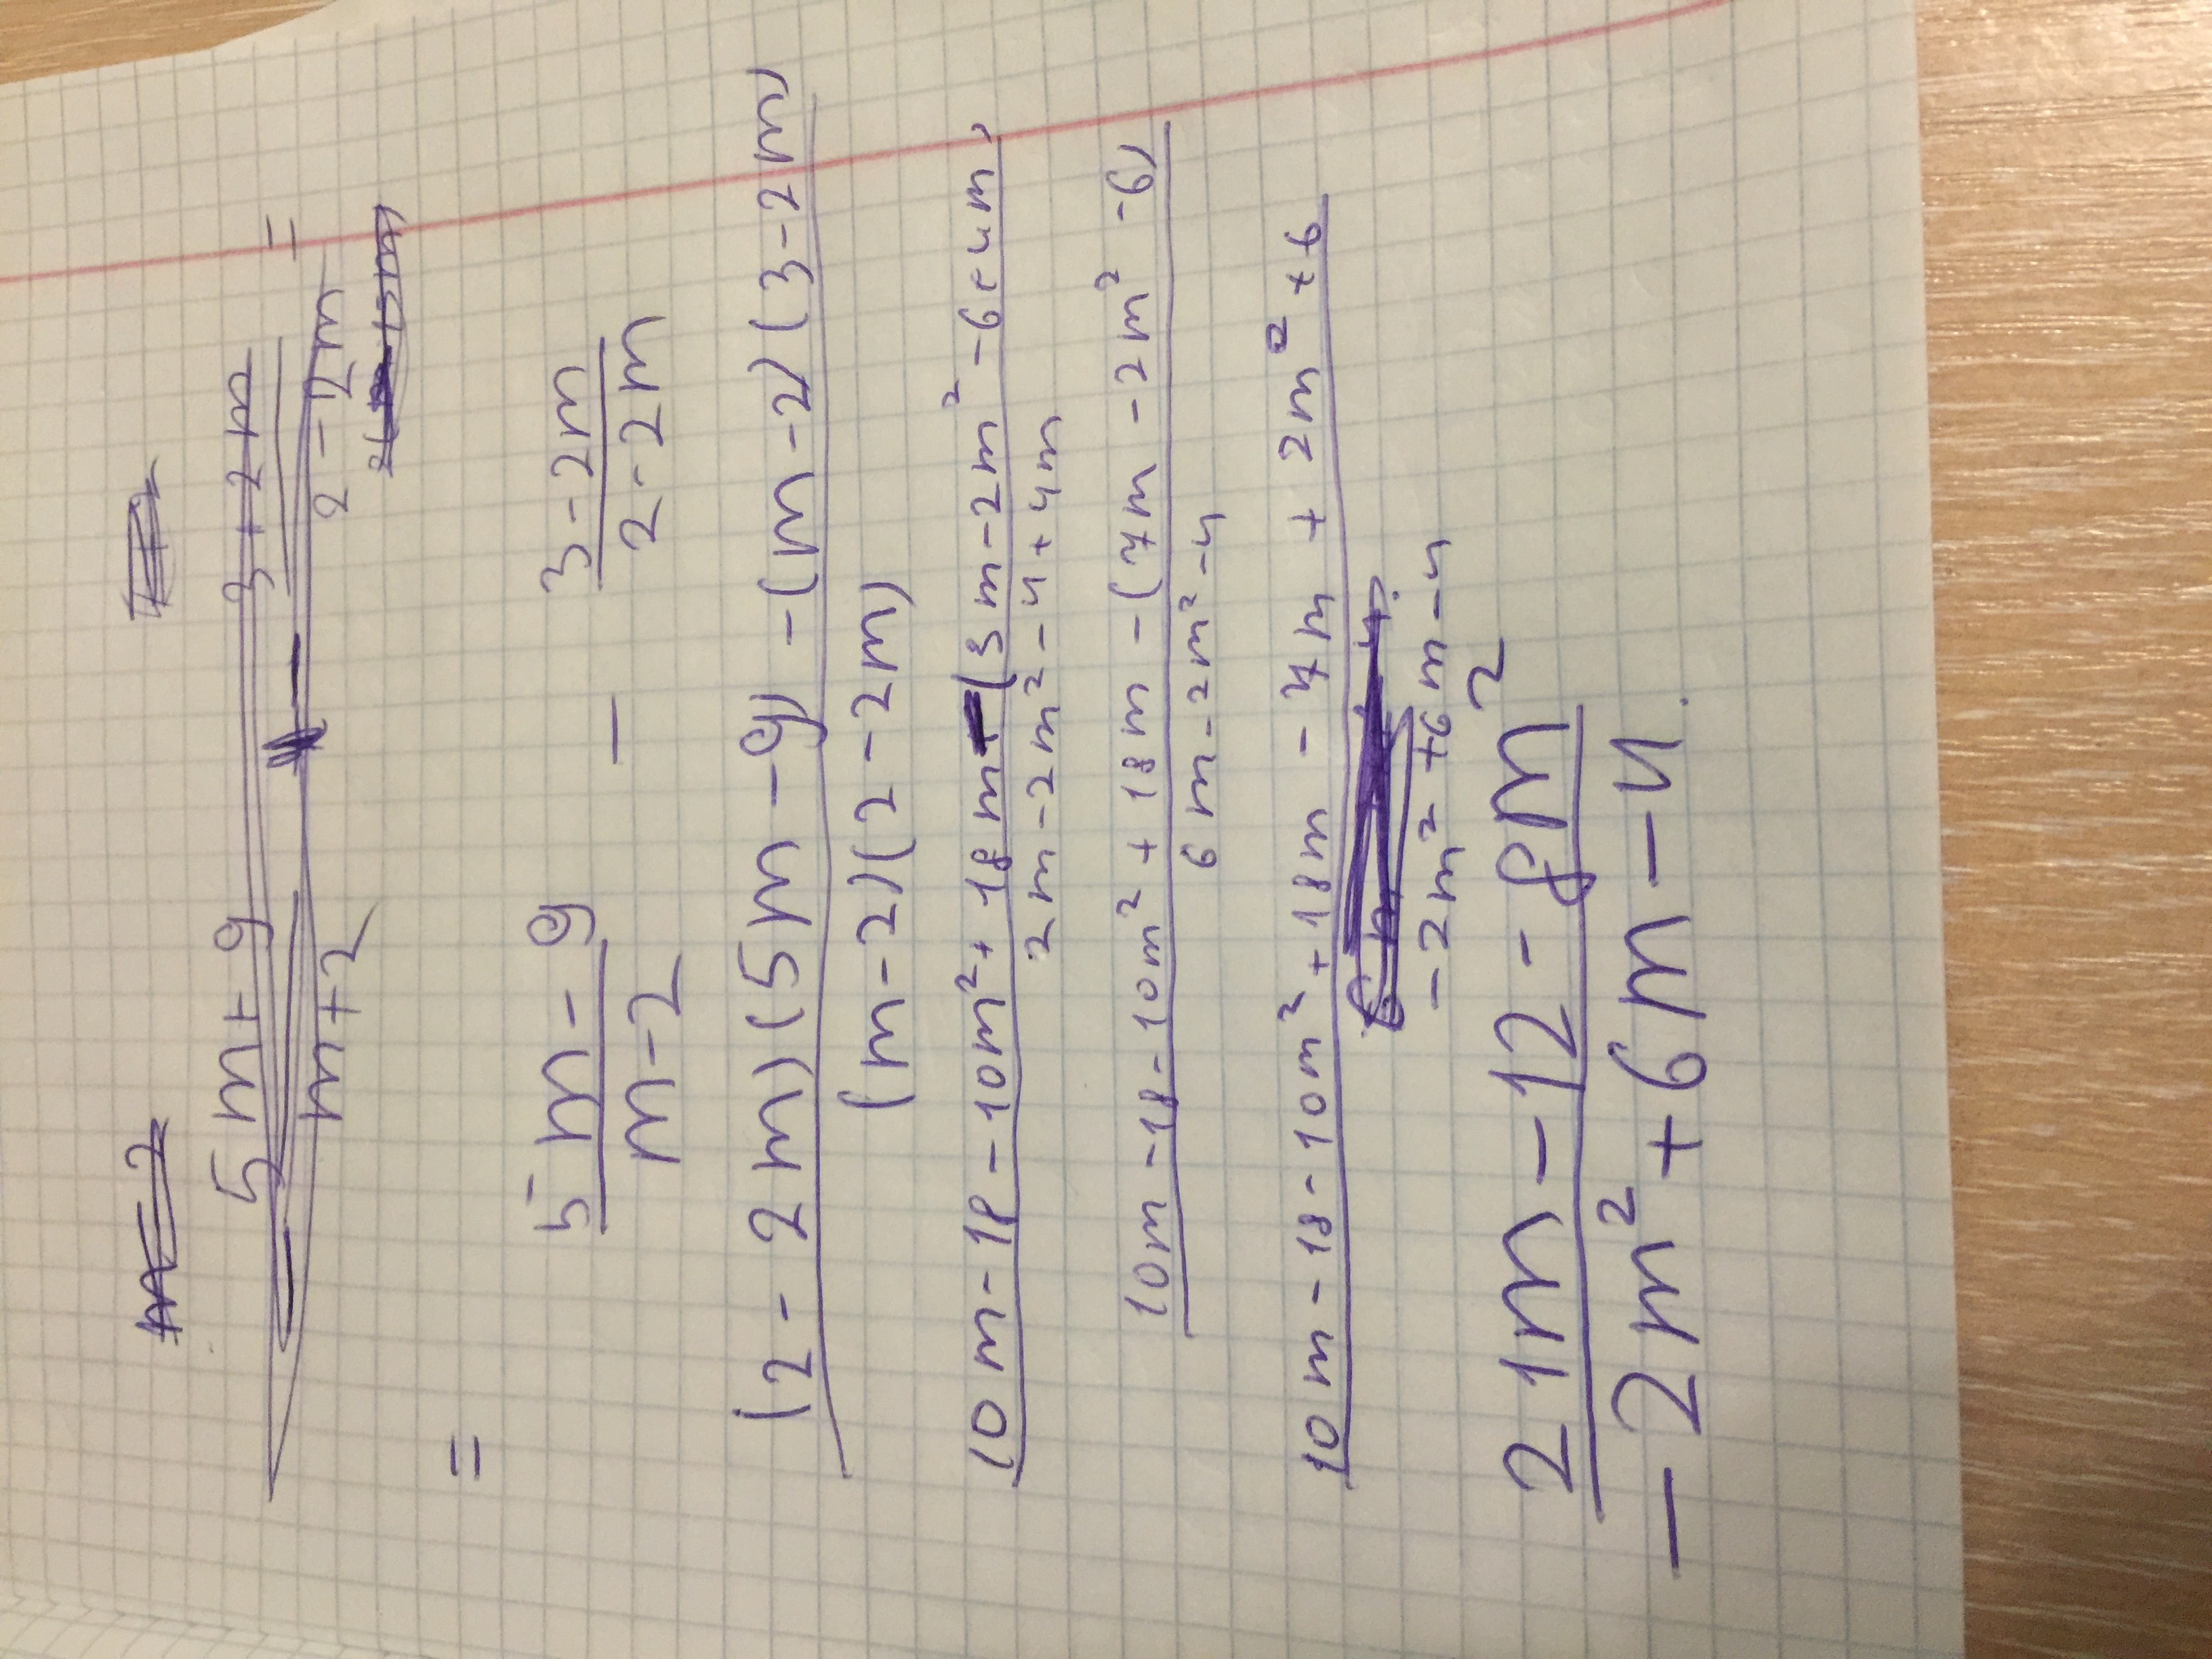 5m+9 3+2m =
m+2 2-2m
= 5m-9 - 3-2m
m-2 2-2m
(2-2m)(5m-9)-(m-2)(3-2m)
(m-2)(2-2m)
10m-18-10m²+18m-(3m-2m²-6+4m)
2m-2m²-4+4m
10m-18-10m²+18m-(7m-2m²-6)
6m-2m²-4
10m-18-10m²+18m-7m+2m²+6
-2m²+6m-4
21m-12-8m²
-2m²+6m-4